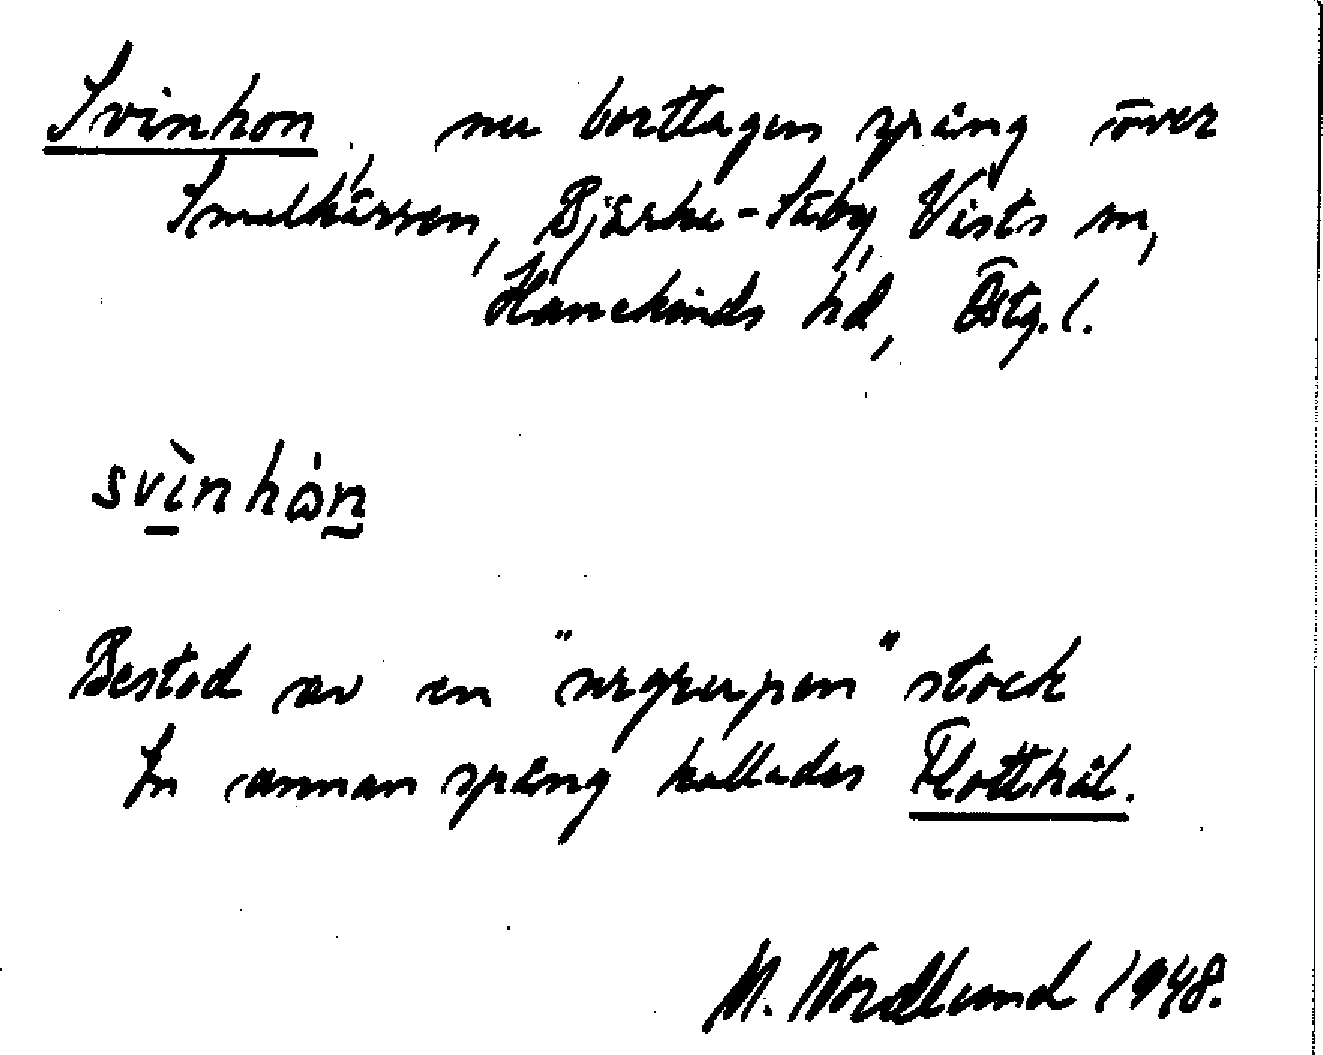 Svinhon, nu borttagen spång över
Smulkärren, Bjärka-Säby, Vists sn,
Hanekinds hd, Östg. l.
svìnhòn
Bestod av en "urgrupen" stock
En annan spång kallades Flotthål.
M. Nordlund 1948.